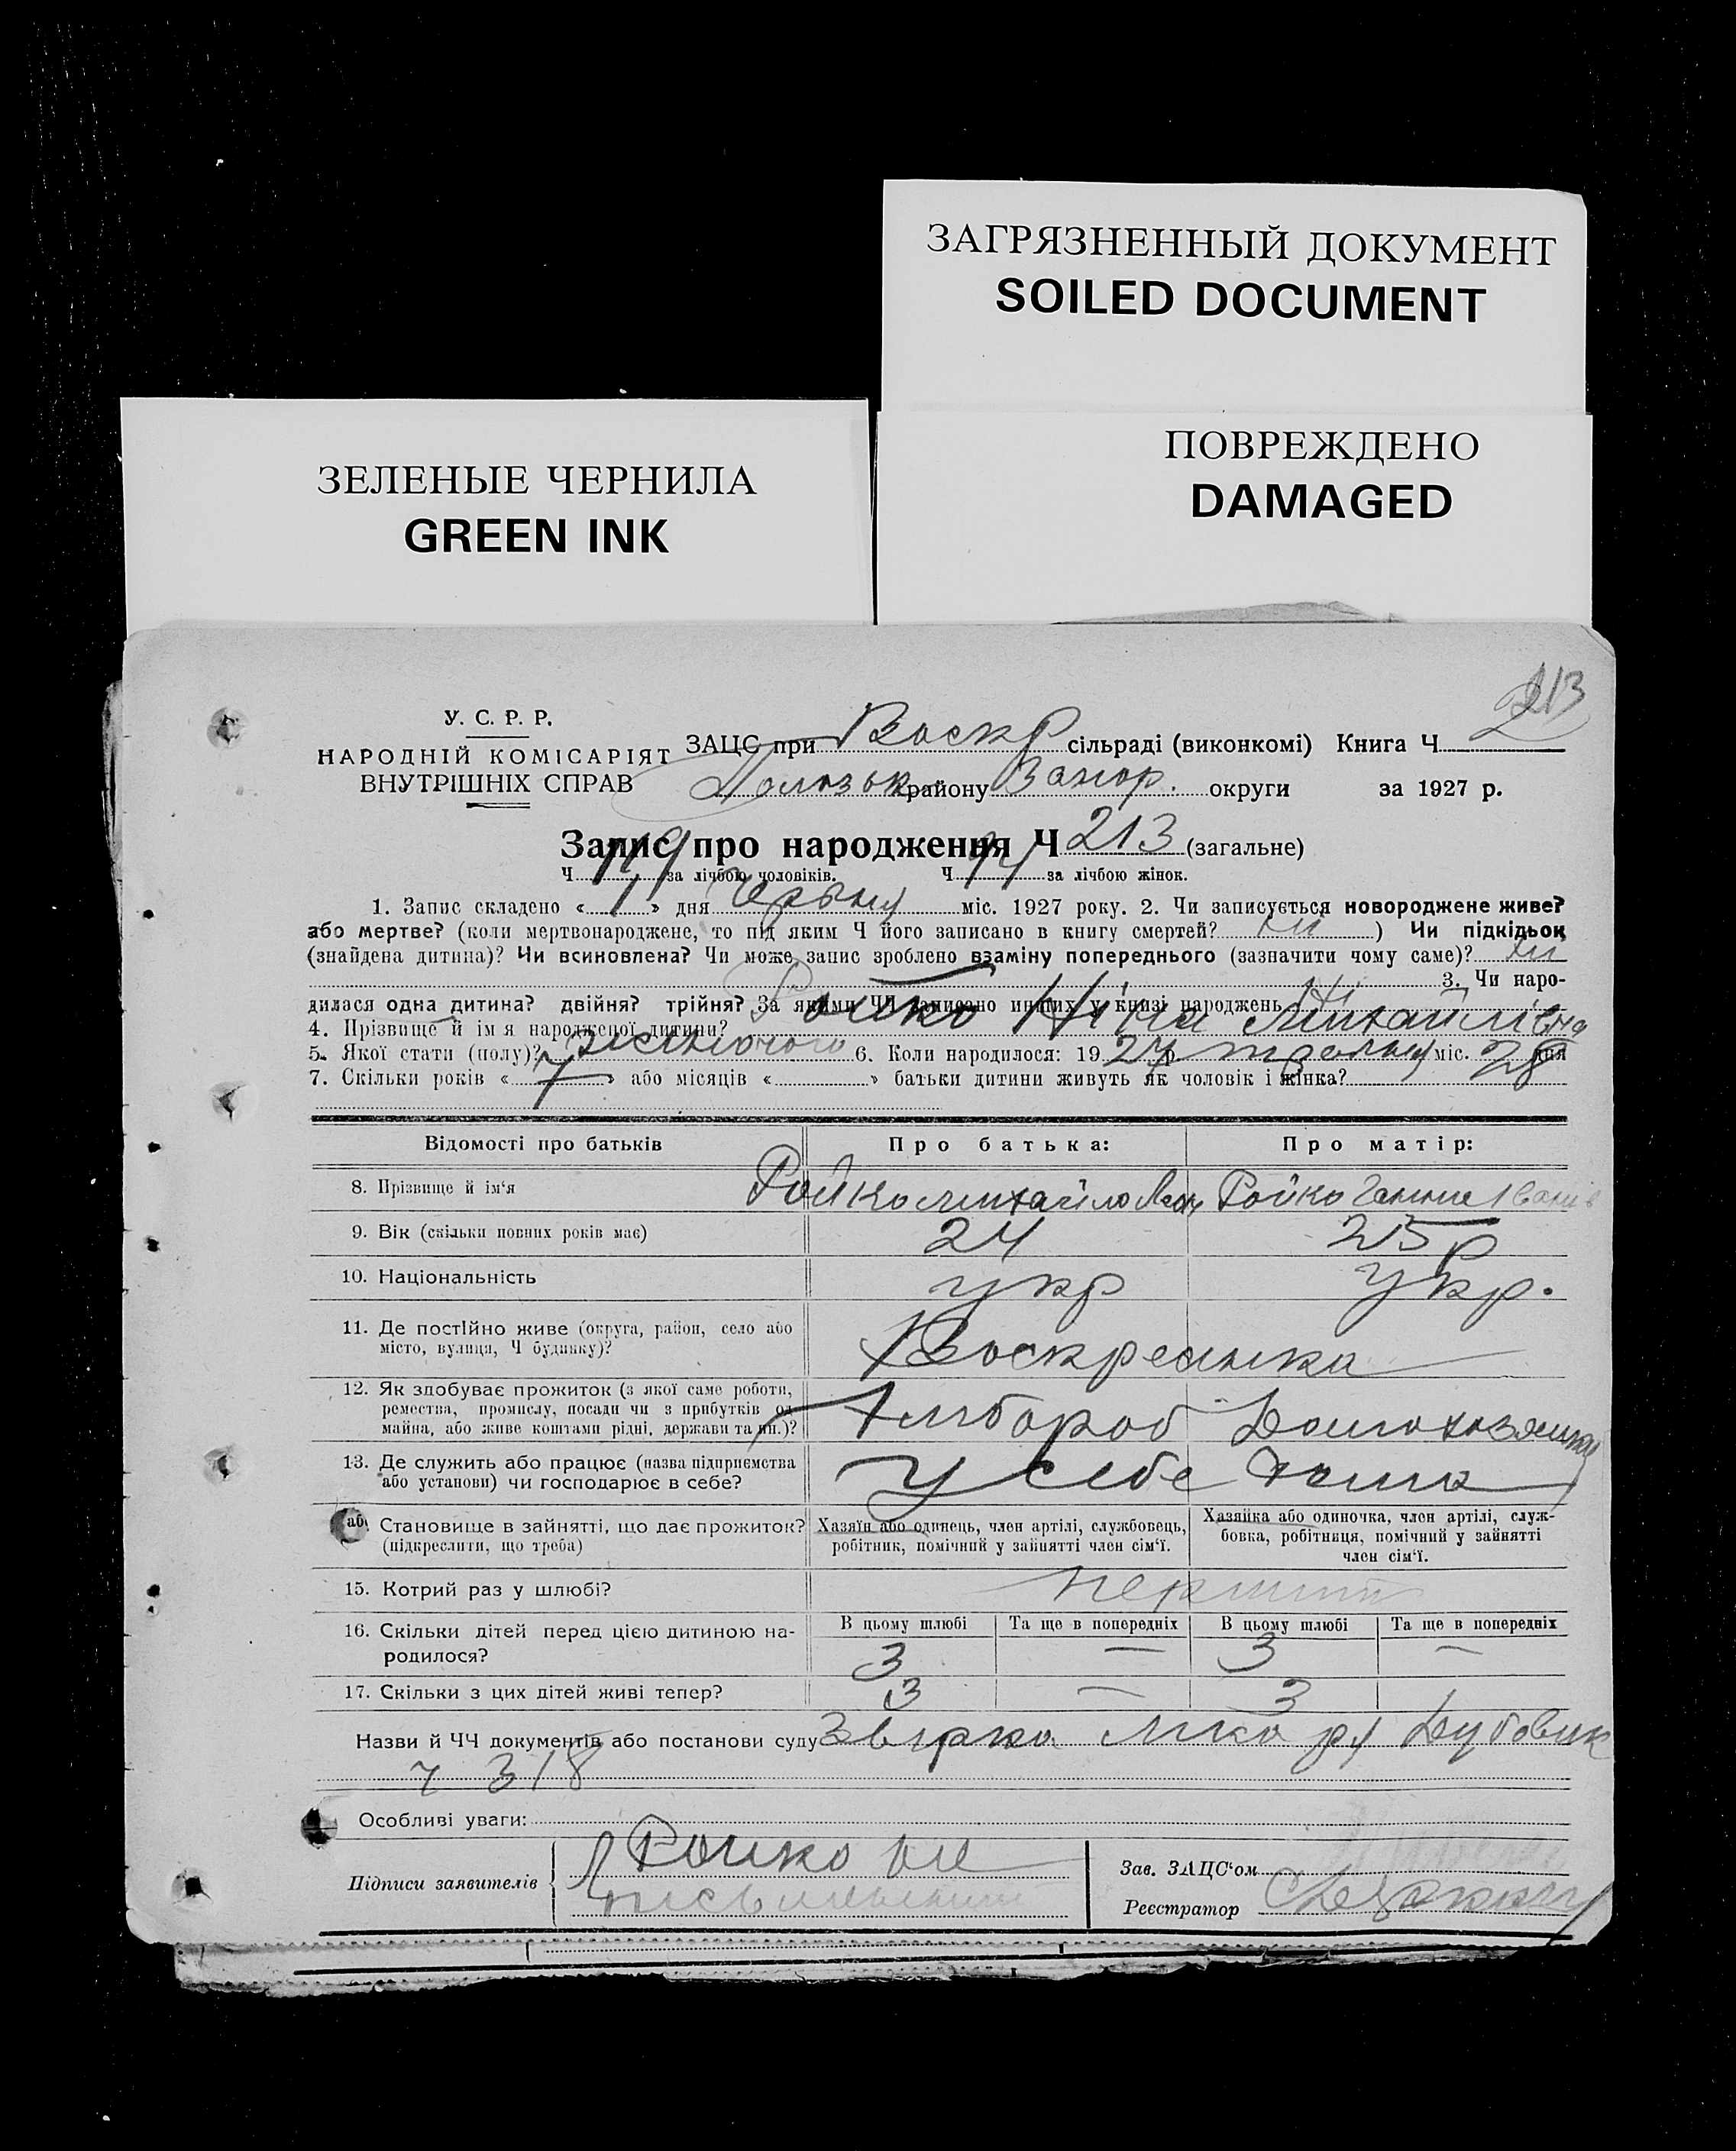 ЗАГРЯЗНЕННЫЙ ДОКУМЕНТ
SOILED DOCUMENT
ЗЕЛЕНЫЕ ЧЕРНИЛА
GREEN INK
ПОВРЕЖДЕНО
DAMAGED
213
У. С. Р. Р.
НАРОДНІЙ КОМІСАРІЯТ
ВНУТРІШНІХ СПРАВ
ЗАЦС при Воскр сільраді (виконкомі) Книга Ч 2
Полозьк району Запор. округи за 1927 р.
Запис про народження Ч 213 (загальне)
Ч 119 за лічбою чоловіків. Ч 94 за лічбою жінок.
1. Запис складено « 1 » дня Червня міс. 1927 року. 2. Чи записується новороджене живе?
або мертве? (коли мертвонароджене, то під яким Ч його записано в книгу смертей? ні ) Чи підкідьок
(знайдена дитина)? Чи всиновлена? Чи може запис зроблено взаміну попереднього (зазначити чому саме)? ні
3. Чи наро-
дилася одна дитина? двійня? трійня? За якими ЧЧ записано инших у книзі народжень Ні
4. Прізвище й ім'я народженої дитини? Ройко Ніна Михайлівна
5. Якої стати (полу)? жіночого 6. Коли народилося: 1927 р. травня міс. 28 дня
7. Скільки років « 7 » або місяців « » батьки дитини живуть як чоловік і жінка?
Відомості про батьків Про батька: Про матір:
8. Прізвище й ім'я Ройко Михайло Ройко Ганна Іванів
9. Вік (скільки повних років має) 24 25 р
10. Національність укр укр.
11. Де постійно живе (округа, район, село або
місто, вулиця, Ч будинку)? Воскресинка
12. Як здобуває прожиток (з якої саме роботи,
ремества, промислу, посади чи з прибутків од
майна, або живе коштами рідні, держави та ин.)? Хлібороб Домохазяйка
13. Де служить або працює (назва підприємства
або установи) чи господарює в себе? У себе дома
Становище в зайнятті, що дає прожиток?
(підкреслити, що треба)
Хазяїн або одинець, член артілі, службовець,
робітник, помічний у зайнятті член сім'ї.
Хазяйка або одиночка, член артілі, служ-
бовка, робітниця, помічний у зайнятті
член сім'ї.
15. Котрий раз у шлюбі? перший
16. Скільки дітей перед цією дитиною на-
родилося?
В цьому шлюбі Та ще в попередніх В цьому шлюбі Та ще в попередніх
3 — 3 —
17. Скільки з цих дітей живі тепер? 3 — 3
Назви й ЧЧ документів або постанови суду Дубовик
ч 318
Особливі уваги:
Підписи заявителів Ройко не
письменний
Зав. ЗАЦС'ом
Реєстратор